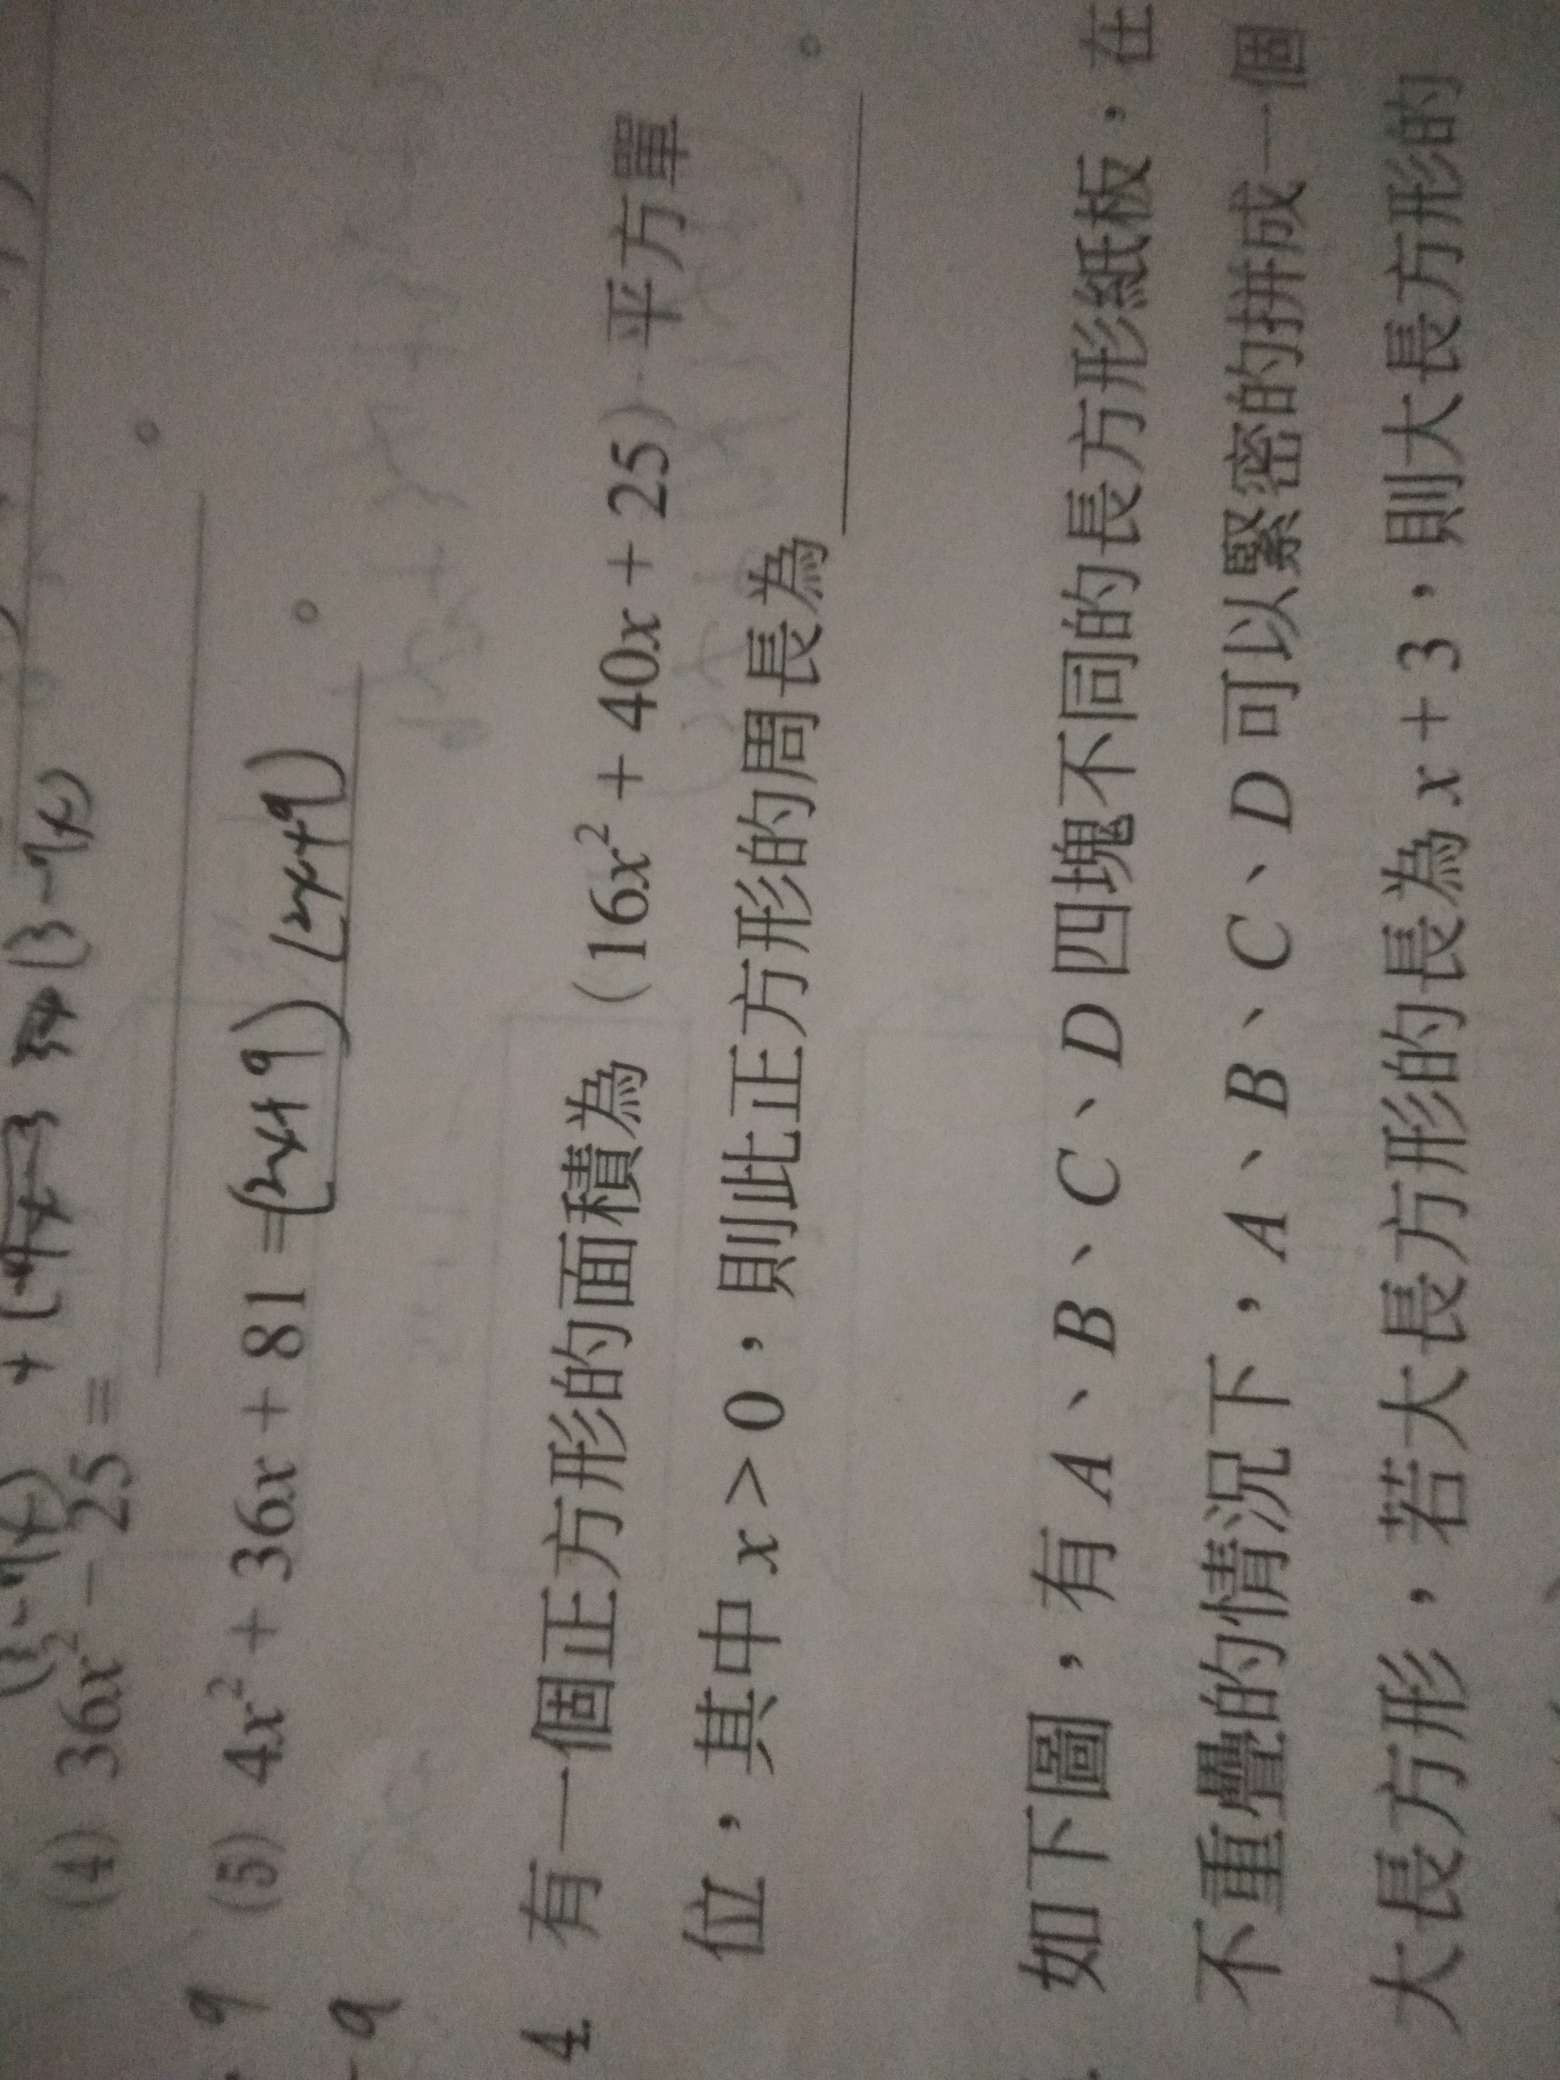 (4) 36x² - 25 =
(5) 4x² + 36x + 81 = (2x+9)(2x+9)。
4. 有一個正方形的面積為 (16x² + 40x + 25) 平方單
位，其中 x > 0，則此正方形的周長為 。
如下圖，有 A、B、C、D 四塊不同的長方形紙板，在
不重疊的情況下，A、B、C、D 可以緊密的拼成一個
大長方形，若大長方形的長為 x + 3，則大長方形的